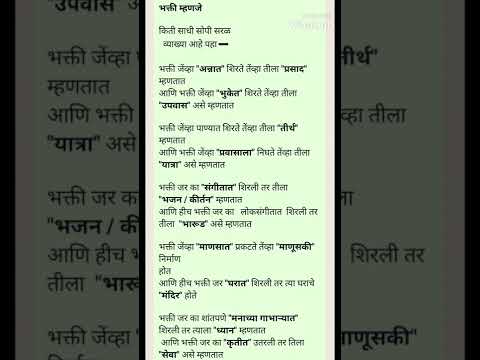 भक्ती म्हणजे
किती साधी सोपी सरळ
व्याख्या आहे पहा ➖
भक्ती जेंव्हा "अन्नात" शिरते तेंव्हा तीला "प्रसाद"
म्हणतात
आणि भक्ती जेंव्हा "भुकेत" शिरते तेंव्हा तीला
"उपवास" असे म्हणतात
भक्ती जेंव्हा पाण्यात शिरते तेंव्हा तीला "तीर्थ"
म्हणतात
आणि भक्ती जेंव्हा "प्रवासाला" निघते तेंव्हा तीला
"यात्रा" असे म्हणतात
भक्ती जर का "संगीतात" शिरली तर तीला
"भजन / कीर्तन" म्हणतात
आणि हीच भक्ती जर का लोकसंगीतात शिरली तर
तीला "भारूड" असे म्हणतात
भक्ती जेंव्हा "माणसात" प्रकटते तेंव्हा "माणूसकी"
निर्माण
होत
आणि हीच भक्ती जर "घरात" शिरली तर त्या घराचे
"मंदिर" होते
भक्ती जर का शांतपणे "मनाच्या गाभाऱ्यात"
शिरली तर त्याला "ध्यान" म्हणतात
आणि भक्ती जर का "कृतीत" उतरली तर तिला
"सेवा" असे म्हणतात